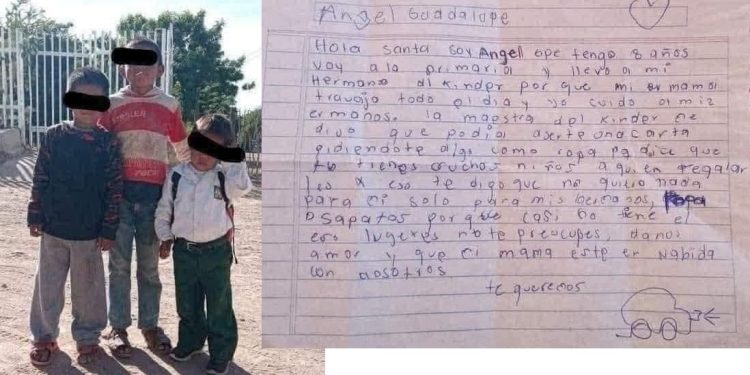 Angel Guadalupe
Hola santa soy Angel ope tengo 8 años
voy a la primaria y llevo a mi
Hermano al kinder por que mi mama
travaja todo el dia y yo cuido a mis
ermanos. la maestra del kinder me
dijo que podia aserte una carta
pidiendote algo como ropa
tu tienes muchos niños a quien regalar
les x eso te digo que no quiero nada
para mi solo para mis hermanos,
o sapatos por que casi no tiene el
eso lugeres no te preocupes, danos
amor y que mi mama este en nabida
con nosotros
te queremos